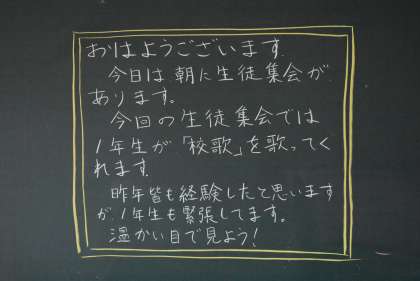 おはようございます.
今日は朝に生徒集会が
あります。
今回の生徒集会では
1年生が「校歌」を歌ってく
れます.
昨年皆も経験したと思います
が、1年生も緊張してます。
温かい目で見よう!